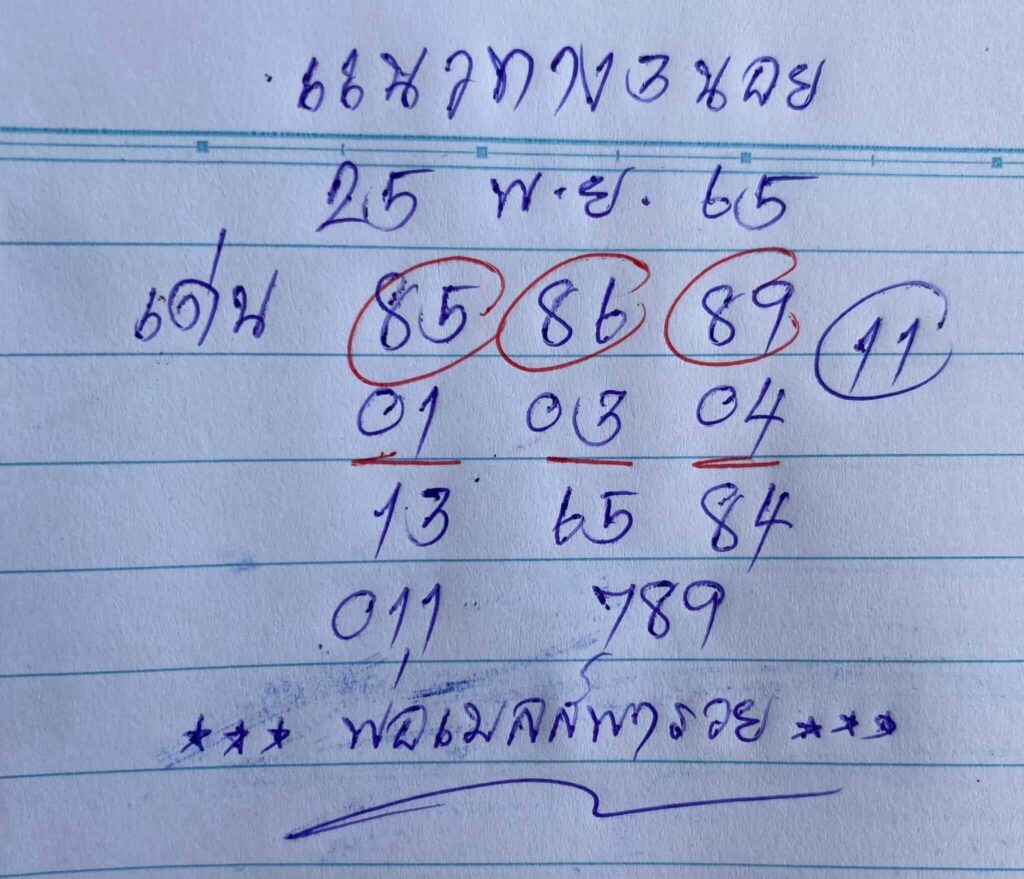 แนวทางฮนอย
25 พ.ย. 65
เด่น 85 86 89 11
01 03 04
13 65 84
011 789
*** พ่อเมลส์พารวย ***